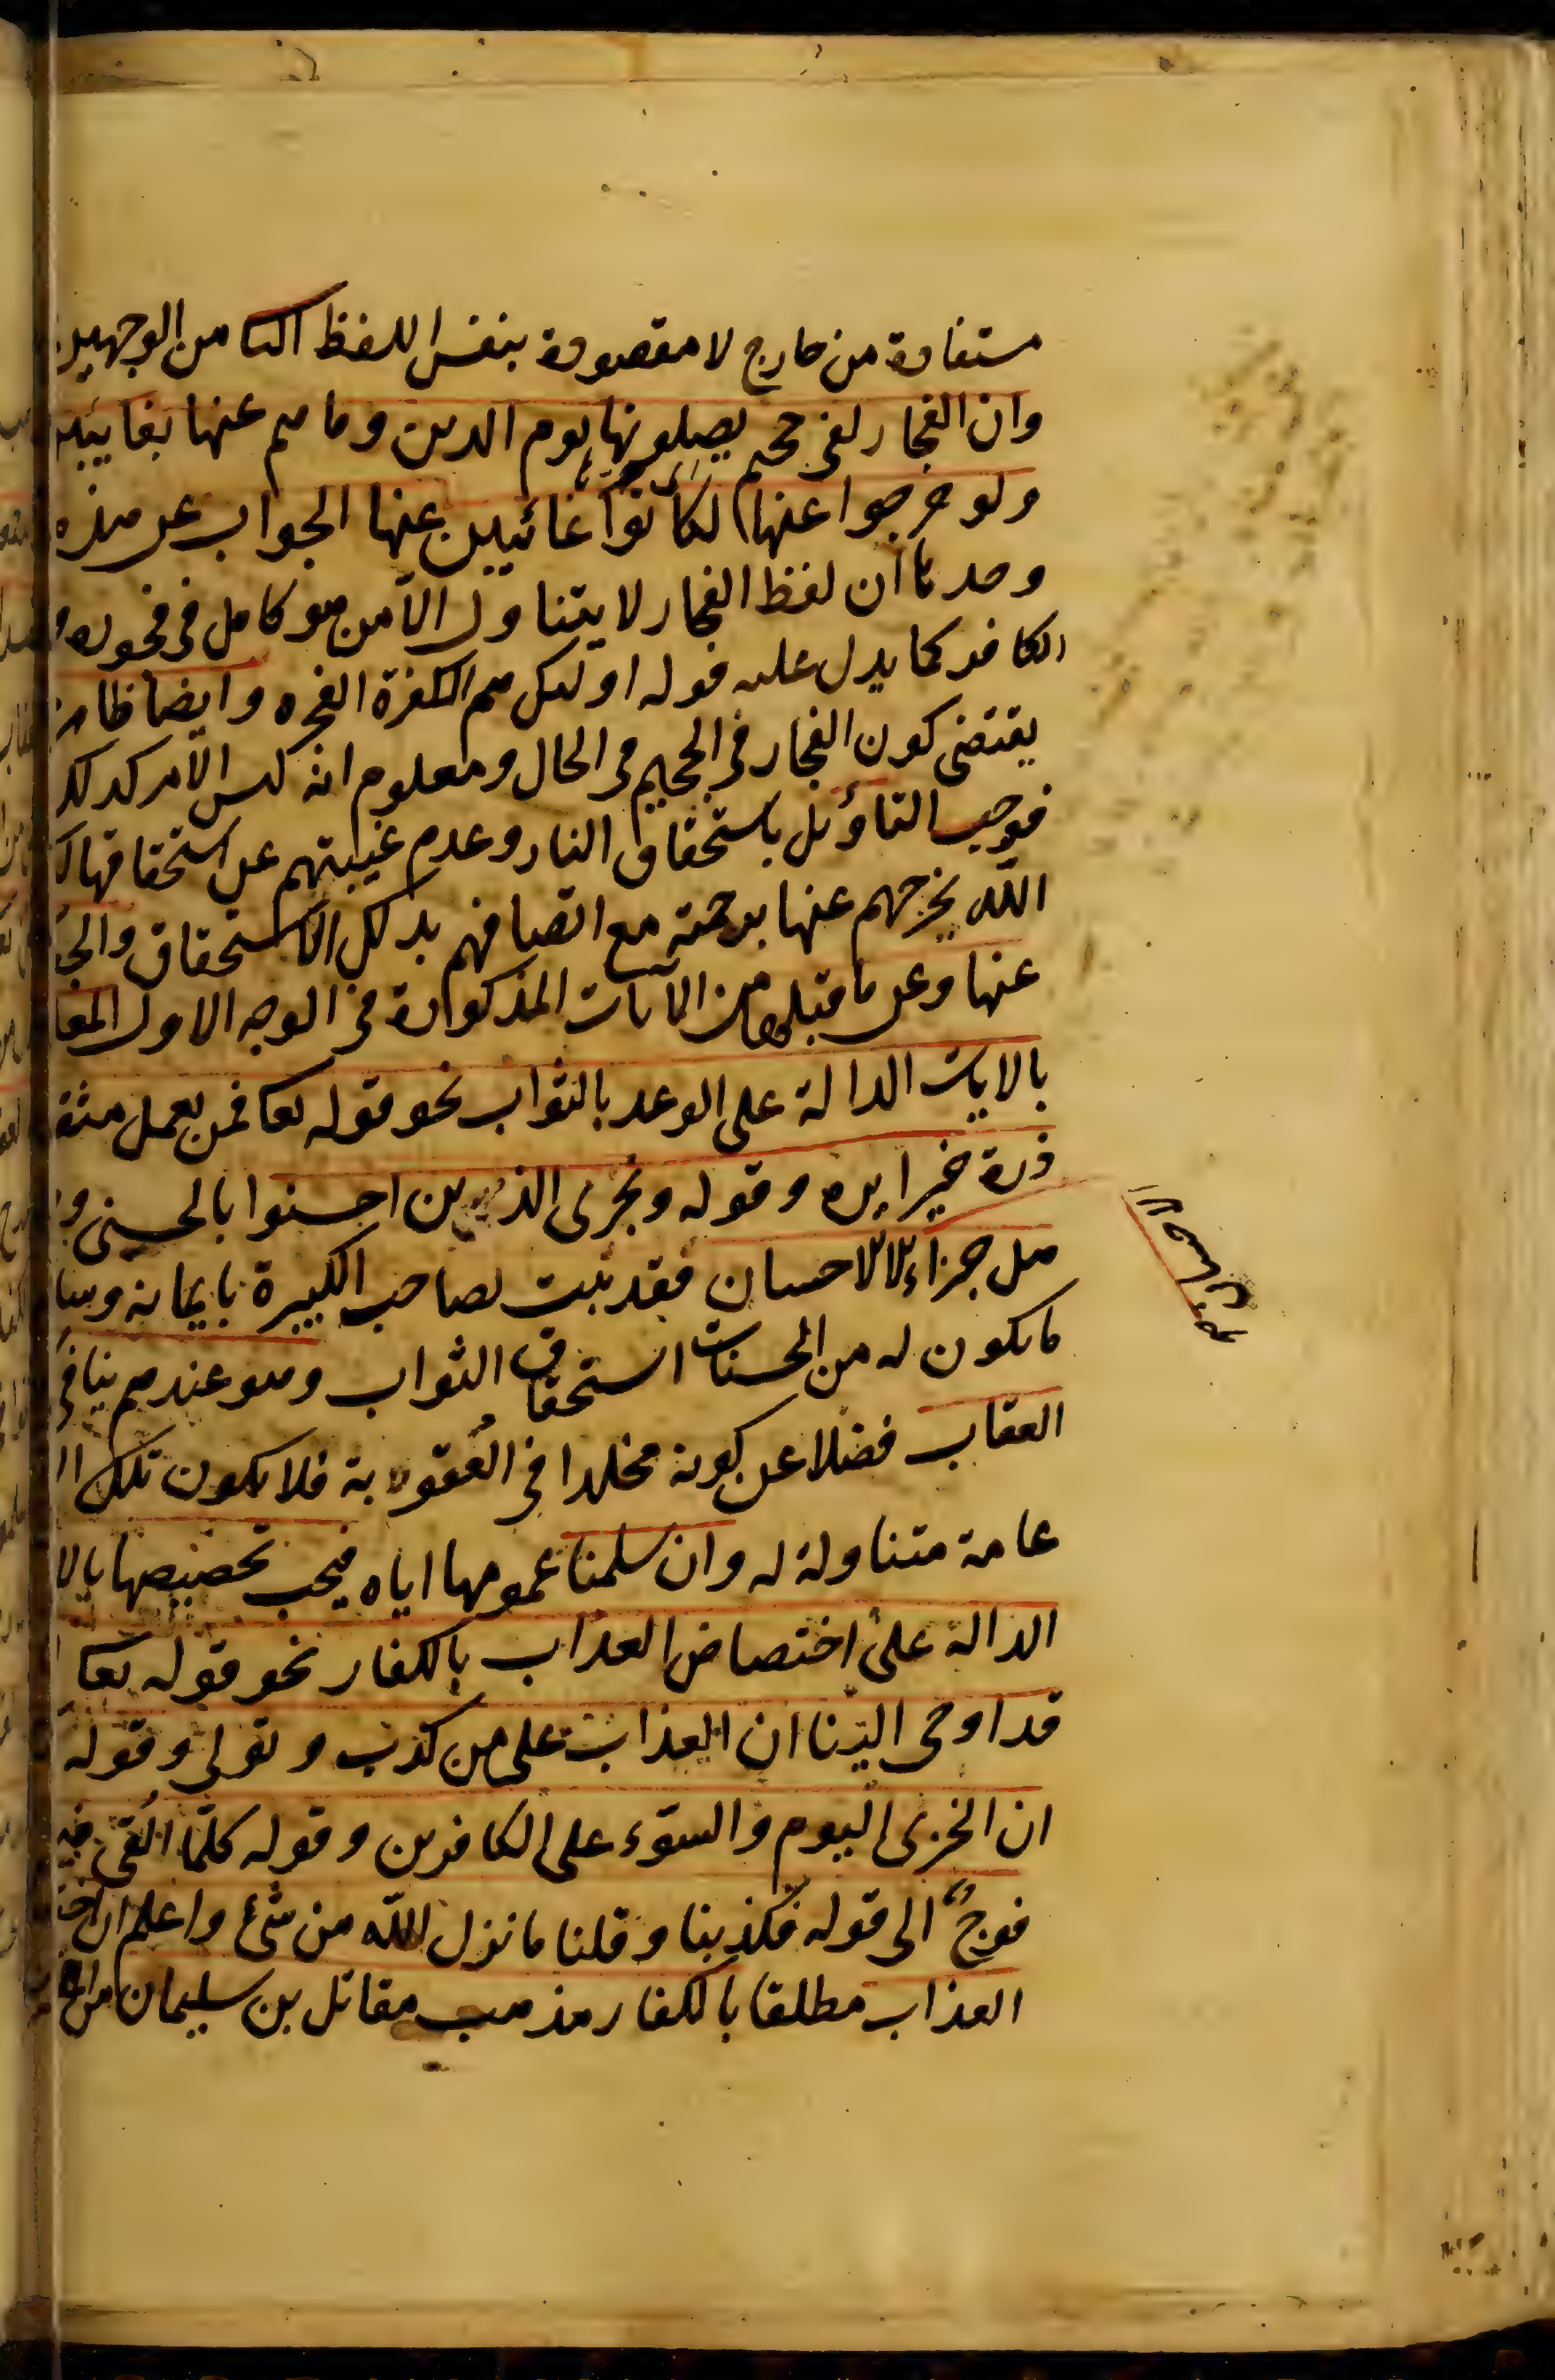 مستفادة من خارج لا مقصودة بنفس اللفظ الثا من الوجهين
وان الفجار لفى جحيم يصلونها يوم الدين وما هم عنها بغايبين
ولو خرجوا عنها لكانوا غائبين عنها الجواب عن هذه
وحدها ان لفظ الفجار لا يتناول الا من هو كامل فى فجوره و
الكافر كما يدل عليه قوله اولئك هم الكفرة الفجره وايضا ظاهر
يقتضى كون الفجار فى الجحيم فى الحال ومعلوم انه ليس الامر كذلك
فوجب التاؤيل باستحقاق النار وعدم غيبتهم عن استحقاقها
الله يخرجهم عنها برحمته مع اتصافهم بذلك الاستحقاق والجو
عنها وعن ما قبلها من الآيات المذكورة فى الوجه الاول المعا
بالايات الدالة على الوعد بالثواب نحو قوله تعا فمن يعمل مثقا
ذرة خيرا يره وقوله ويجزى الذين احسنوا بالحسنى و
هل جزاء الاحسان فقد ثبت لصاحب الكبيرة بايمانه وسا
ما يكون له من الحسنات استحقاق الثواب وهو عندهم ينافى
العقاب فضلا عن كونه مخلدا فى العقوبة فلا يكون تلك ال
عامة متناولة له وان سلمنا عمومها اياه فيجب تخصيصها بالا
الدالة على اختصاص العذاب بالكفار نحو قوله تعا
قد اوحى الينا ان العذاب على من كذب وتولى وقوله
ان الخزى اليوم والسوء على الكافرين وقوله كلما القى فيها
فوج الى قوله فكذبنا وقلنا ما نزل الله من شئ واعلم ان اخت
العذاب مطلقا بالكفار مذهب مقاتل بن سليمان من